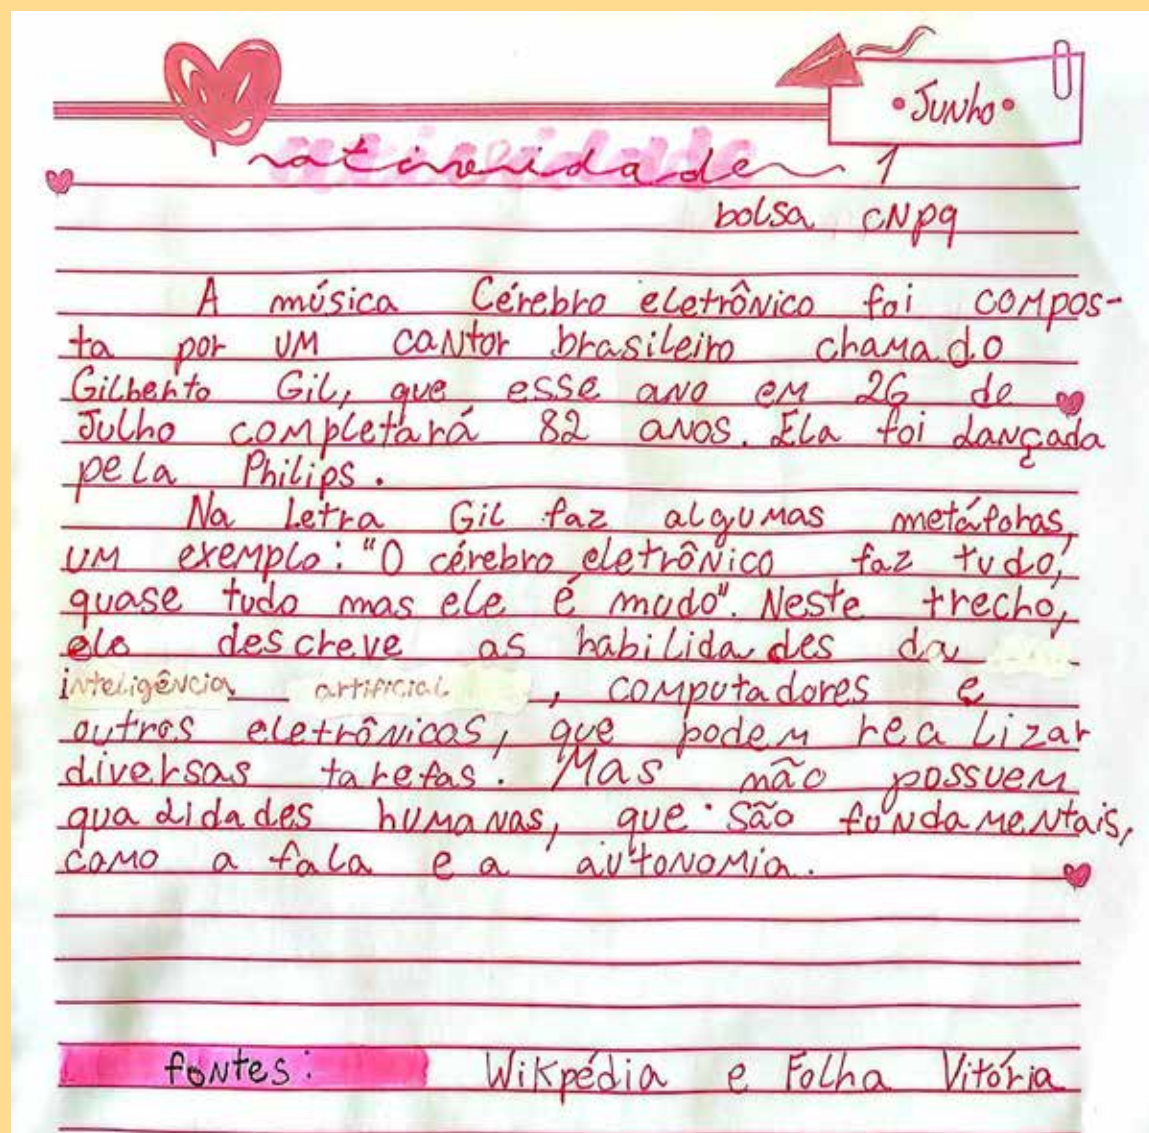 •Junho•
atividade 1
bolsa CNPq
A música Cérebro eletrônico foi compos-
ta por um cantor brasileiro chamado
Gilberto Gil, que esse ano em 26 de
Julho completará 82 anos. Ela foi lançada
pela Philips.
Na letra Gil faz algumas metáforas,
um exemplo: "O cérebro eletrônico faz tudo,
quase tudo mas ele é mudo". Neste trecho,
ele descreve as habilidades da
inteligência artificial, computadores e
outros eletrônicos, que podem realizar
diversas tarefas. Mas não possuem
qualidades humanas, que são fundamentais,
como a fala e a autonomia.
fontes: Wikpédia e Folha Vitória